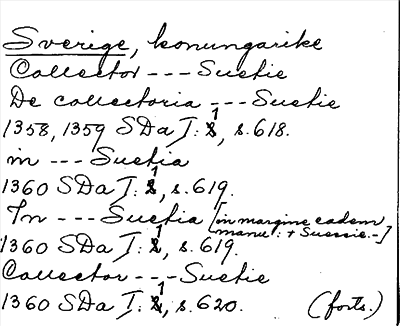 Sverige, konungarike
Collector --- Suetie
De collectoria --- Suetie
1358, 1359 SDa I:1, s. 618.
in --- Suetia
1360 SDa I:1, s. 619.
In --- Suetia [in margine eadem
manu: + Suessie.-]
1360 SDa I:1, s. 619.
Collector --- Suetie
1360 SDa I:1, s. 620. (forts.)